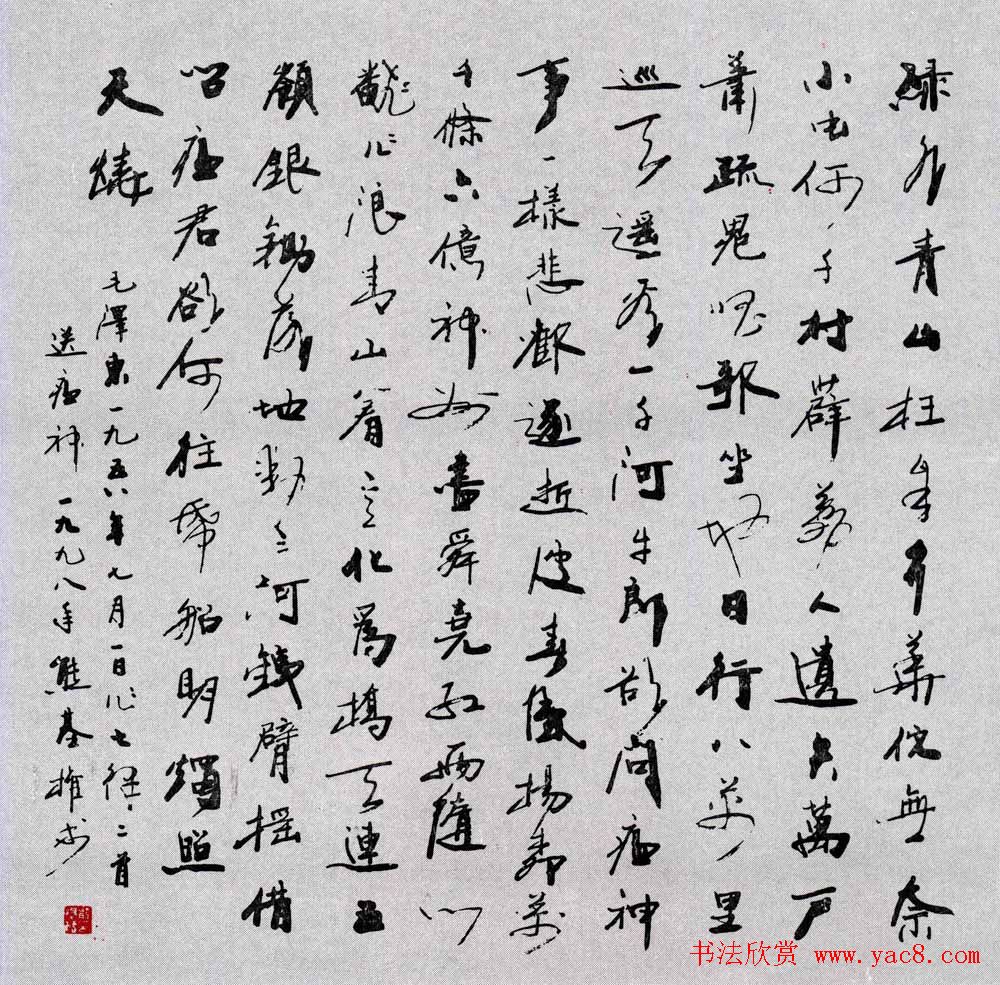 綠水青山枉自多華佗無奈
小虫何千村薜荔人遺矢萬户
蕭疏鬼唱歌坐地日行八万里
巡天遥看一千河牛郎欲问瘟神
事一樣悲歡逐逝波春風揚柳万
千條六億神州盡舜堯紅雨隨心
翻作浪青山着意化爲橋天連五
嶺銀鋤落地動三河鐵臂摇借
问瘟君欲何往紙船明燭照
天燒
毛澤東一九五八年七月一日作七律二首
送瘟神一九九八年熊基權书
书法欣赏 www.yac8.com